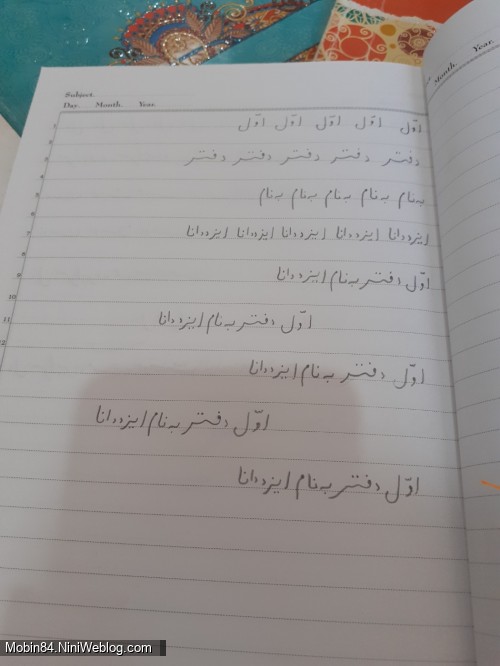 Subject.
Day. Month. Year.
Month. Year.
1
اوّل اوّل اوّل اوّل اوّل
2
دفتر دفتر دفتر دفتر دفتر
3
4
به‌نام به‌نام به‌نام به‌نام به‌نام
5
6
ایزددانا ایزددانا ایزددانا ایزددانا ایزددانا
7
8
اوّل دفتر به‌نام ایزددانا
9
10
اوّل دفتر به‌نام ایزددانا
11
12
اوّل دفتر به‌نام ایزددانا
اوّل دفتر به‌نام ایزددانا
اوّل دفتر به‌نام ایزددانا
Mobin84.NiniWeblog.com